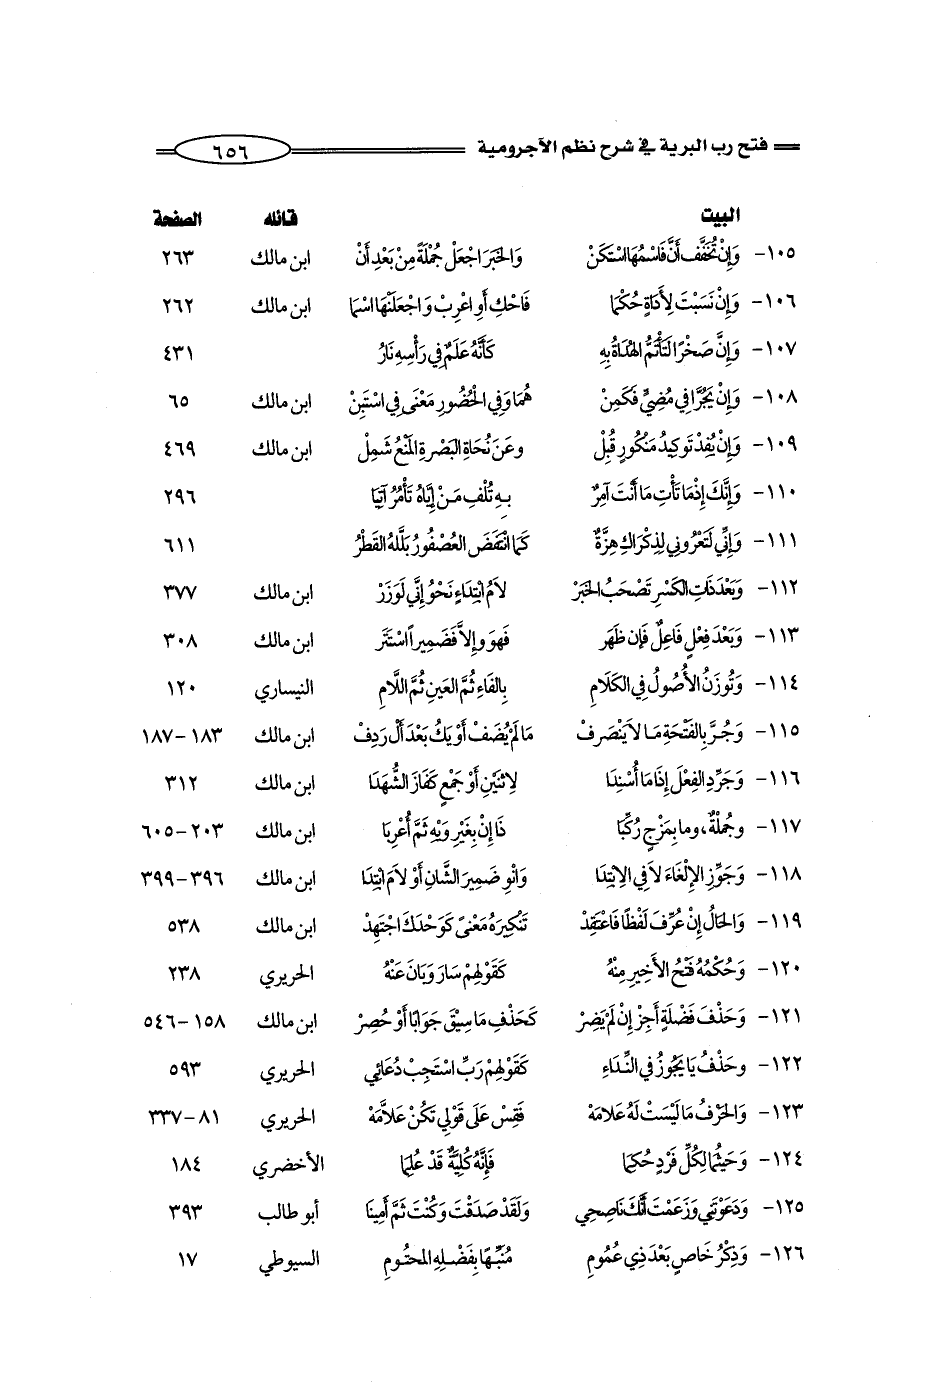 فتح رب البرية في شرح نظم الآجرومية ٦٥٦
البيت قائله الصفحة
١٠٥- وَإِنْ تُخَفَّف أَنَّ فَاسْمُهَا اسْتَكَنْ وَالخَبَرَ اجْعَلْ جُمْلَةً مِنْ بَعْدِ أَنْ ابن مالك ٢٦٣
١٠٦- وَإِنْ نَسَبْتَ لِأَدَاةٍ حُكْمَا فَاحْكِ أَو اعْرِبْ وَاجْعَلَنْهَا اسْمَا ابن مالك ٢٦٢
١٠٧- وَإِنَّ صَخْرًا لَتَأْتَمُّ الهُدَاةُ بِهِ كَأَنَّهُ عَلَمٌ فِي رَأْسِهِ نَارُ ٤٣١
١٠٨- وَإِنْ يَجُرَّا فِي مُضِيٍّ فَكَمِنْ هُمَا وَفِي الحُضُورِ مَعْنَى فِي اسْتَبِنْ ابن مالك ٦٥
١٠٩- وَإِنْ يُفِدْ تَوكِيدُ مَنْكُورٍ قُبِلْ وعَنْ نُحَاةِ البَصْرَةِ المَنْعُ شَمِلْ ابن مالك ٤٦٩
١١٠- وَإِنَّكَ إِذْمَا تَأْتِ مَا أَنْتَ آمِرٌ بِهِ تُلْفِ مَنْ إِيَّاهُ تَأْمُرُ آتِيَا ٢٩٦
١١١- وَإِنِّي لَتَعْرُونِي لِذِكْرَاكِ هِزَّةٌ كَمَا انْتَفَضَ العُصْفُورُ بَلَّلَهُ القَطْرُ ٦١١
١١٢- وَبَعْدَ ذَاتِ الكَسْرِ تَصْحَبُ الخَبَرْ لَامُ ابْتِدَاءٍ نَحْوُ إِنِّي لَوَزَرْ ابن مالك ٣٧٧
١١٣- وَبَعْدَ فِعْلٍ فَاعِلٌ فَإِن ظَهَر فَهوَ وإِلاَّ فَضَمِيراً اسْتَتَر ابن مالك ٣٠٨
١١٤- وَتُوزَنُ الأُصُولُ فِي الكَلَامِ بِالفَاءِ ثُمَّ العَينِ ثُمَّ اللَّامِ النيساري ١٢٠
١١٥- وَجُرَّ بِالفَتْحَةِ مَا لاَ يَنْصَرِفْ مَا لَمْ يُضَفْ أَوْ يَكُ بَعْدَ أَلْ رَدِفْ ابن مالك ١٨٣-١٨٧
١١٦- وَجَرِّدِ الفِعْلَ إِذَا مَا أُسْنِدَا لِاثْنَيْنِ أَوْ جَمْعٍ كَفَازَ الشُّهَدَا ابن مالك ٣١٢
١١٧- وجُملْةٌ، وما بِمَزْجٍ رُكِّبَا ذَا إِنْ بِغَيْرِ وَيْهِ تَمَّ أُعْرِبَا ابن مالك ٢٠٣-٦٠٥
١١٨- وَجَوِّزِ الإِلْغَاءَ لاَ فِي الاِبْتِدَا وَانْوِ ضَمِيرَ الشَّانِ أَوْ لاَمَ ابْتِدَا ابن مالك ٣٩٦-٣٩٩
١١٩- وَالحَالُ إِنْ عُرِّفَ لَفْظًا فَاعْتَقِدْ تَنْكِيرَهُ مَعْنىً كَوَحْدَكَ اجْتَهِدْ ابن مالك ٥٣٨
١٢٠- وَحُكْمُهُ فَتْحُ الأَخِيرِ مِنْهُ كَقَوْلِهِمْ سَارَ وَبَانَ عَنْهُ الحريري ٢٣٨
١٢١- وَحَذْفَ فَضْلَةٍ أَجِزْ إِنْ لَمْ يَضِرْ كَحَذْفِ مَا سِيْقَ جَوَابًا أَوْ حُصِرْ ابن مالك ١٥٨-٥٤٦
١٢٢- وحَذْفُ يَا يَجُوزُ فِي النِّدَاءِ كَقَوْلِهِمْ رَبِّ اسْتَجِبْ دُعَائِي الحريري ٥٩٣
١٢٣- وَالحَرْفُ مَا لَيْسَتْ لَهُ عَلامَهْ فَقِسْ عَلَى قَوْلِي تَكُنْ عَلاَّمَهْ الحريري ٨١-٣٣٧
١٢٤- وَحَيثُمَا لِكُلِّ فَرْدٍ حُكِمَا فَإِنَّهُ كُلِيَّةٌ قَدْ عُلِمَا الأخضري ١٨٤
١٢٥- وَدَعَوْتَنِي وَزَعَمْتَ أَنَّكَ نَاصِحِي وَلَقَدْ صَدَقْتَ وَكُنْتَ ثَمَّ أَمِينَا أبو طالب ٣٩٣
١٢٦- وَذِكْرُ خَاصٍ بَعْدَ ذِي عُمُومِ مُنَبِّهًا بِفَضْلِهِ المحتُومِ السيوطي ١٧